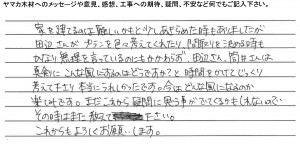 ヤマカ木材へのメッセージや意見、感想、工事への期待、疑問、不安など何でもご記入下さい。
家を建てるのは難しいかもと少しあきらめた時もありましたが
田辺さんがプランを色々考えてくれたり、間取りを決める時も
かなり無理を言っているのにもかかわらず、田辺さん、筒井さんは
真剣に こんな風にするのはどうですか?と 時間をかけてじっくり
考えて下さり本当にうれしかったです。今はどんな風になるのか
楽しみです。まだこれから疑問に思う事がでてくるかもしれないので
その時はまた教えて下さい。
これからもよろしくお願いします。